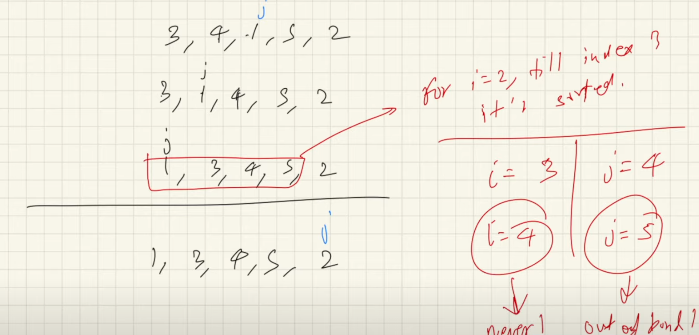 j
3, 4, 1, 5, 2
j
3, 1, 4, 5, 2
j
1, 3, 4, 5, 2
j
1, 3, 4, 5, 2
for i=2, till index 3
it's sorted.
i = 3 j = 4
i = 4 j = 5
never! out of bond!